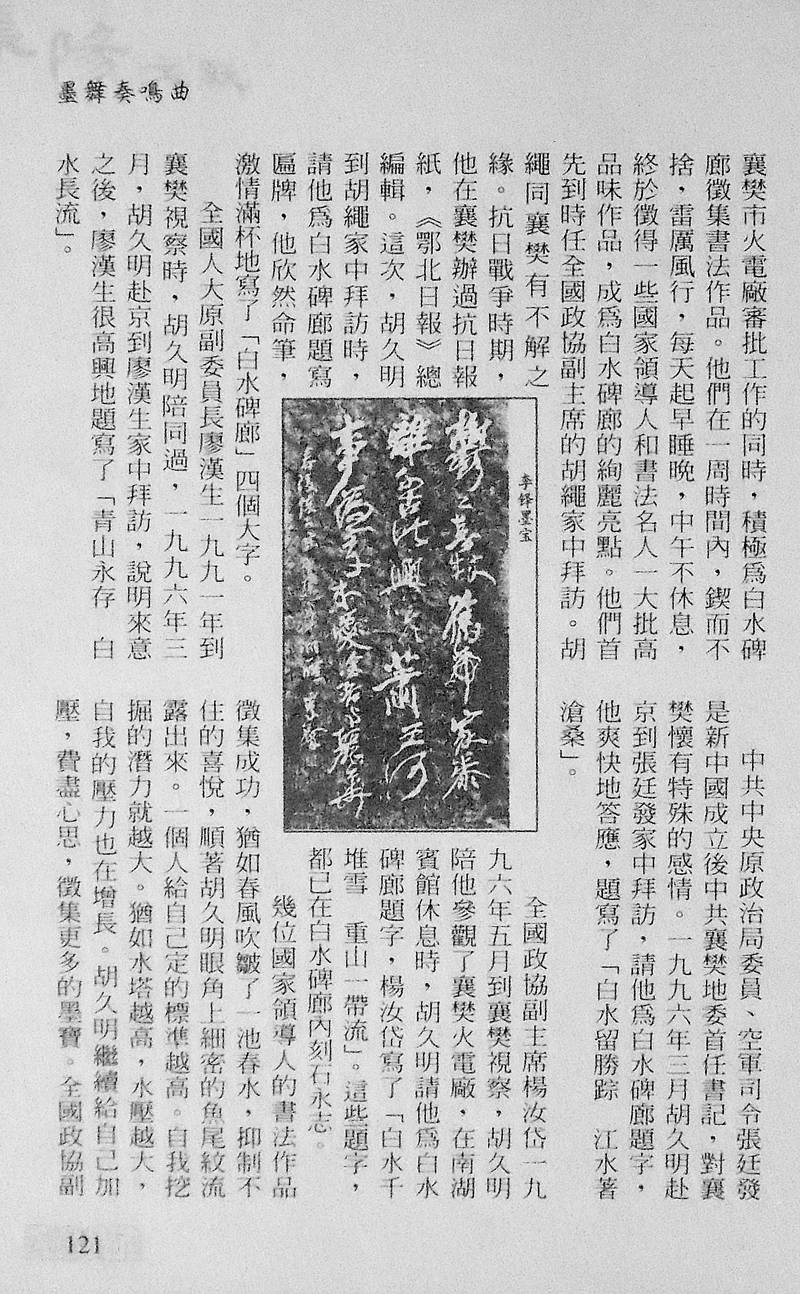 墨舞奏鳴曲
襄樊市火電廠審批工作的同時，積極爲白水碑
廊徵集書法作品。他們在一周時間內，鍥而不
捨，雷厲風行，每天起早睡晚，中午不休息，
終於徵得一些國家領導人和書法名人一大批高
品味作品，成爲白水碑廊的絢麗亮點。他們首
先到時任全國政協副主席的胡繩家中拜訪。胡
繩同襄樊有不解之
緣。抗日戰爭時期，
他在襄樊辦過抗日報
紙，《鄂北日報》總
編輯。這次，胡久明
到胡繩家中拜訪時，
請他爲白水碑廊題寫
匾牌，他欣然命筆，
激情滿杯地寫了「白水碑廊」四個大字。
全國人大原副委員長廖漢生一九九一年到
襄樊視察時，胡久明陪同過，一九九六年三
月，胡久明赴京到廖漢生家中拜訪，說明來意
之後，廖漢生很高興地題寫了「青山永存　白
水長流」。
李铎墨宝
中共中央原政治局委員、空軍司令張廷發
是新中國成立後中共襄樊地委首任書記，對襄
樊懷有特殊的感情。一九九六年三月胡久明赴
京到張廷發家中拜訪，請他爲白水碑廊題字，
他爽快地答應，題寫了「白水留勝踪　江水著
滄桑」。
全國政協副主席楊汝岱一九
九六年五月到襄樊視察，胡久明
陪他參觀了襄樊火電廠，在南湖
賓館休息時，胡久明請他爲白水
碑廊題字，楊汝岱寫了「白水千
堆雪　重山一帶流」。這些題字，
都已在白水碑廊內刻石永志。
幾位國家領導人的書法作品
徵集成功，猶如春風吹皺了一池春水，抑制不
住的喜悅，順著胡久明眼角上細密的魚尾紋流
露出來。一個人給自己定的標準越高。自我挖
掘的潛力就越大。猶如水塔越高，水壓越大，
自我的壓力也在增長。胡久明繼續給自己加
壓，費盡心思，徵集更多的墨寶。全國政協副
121